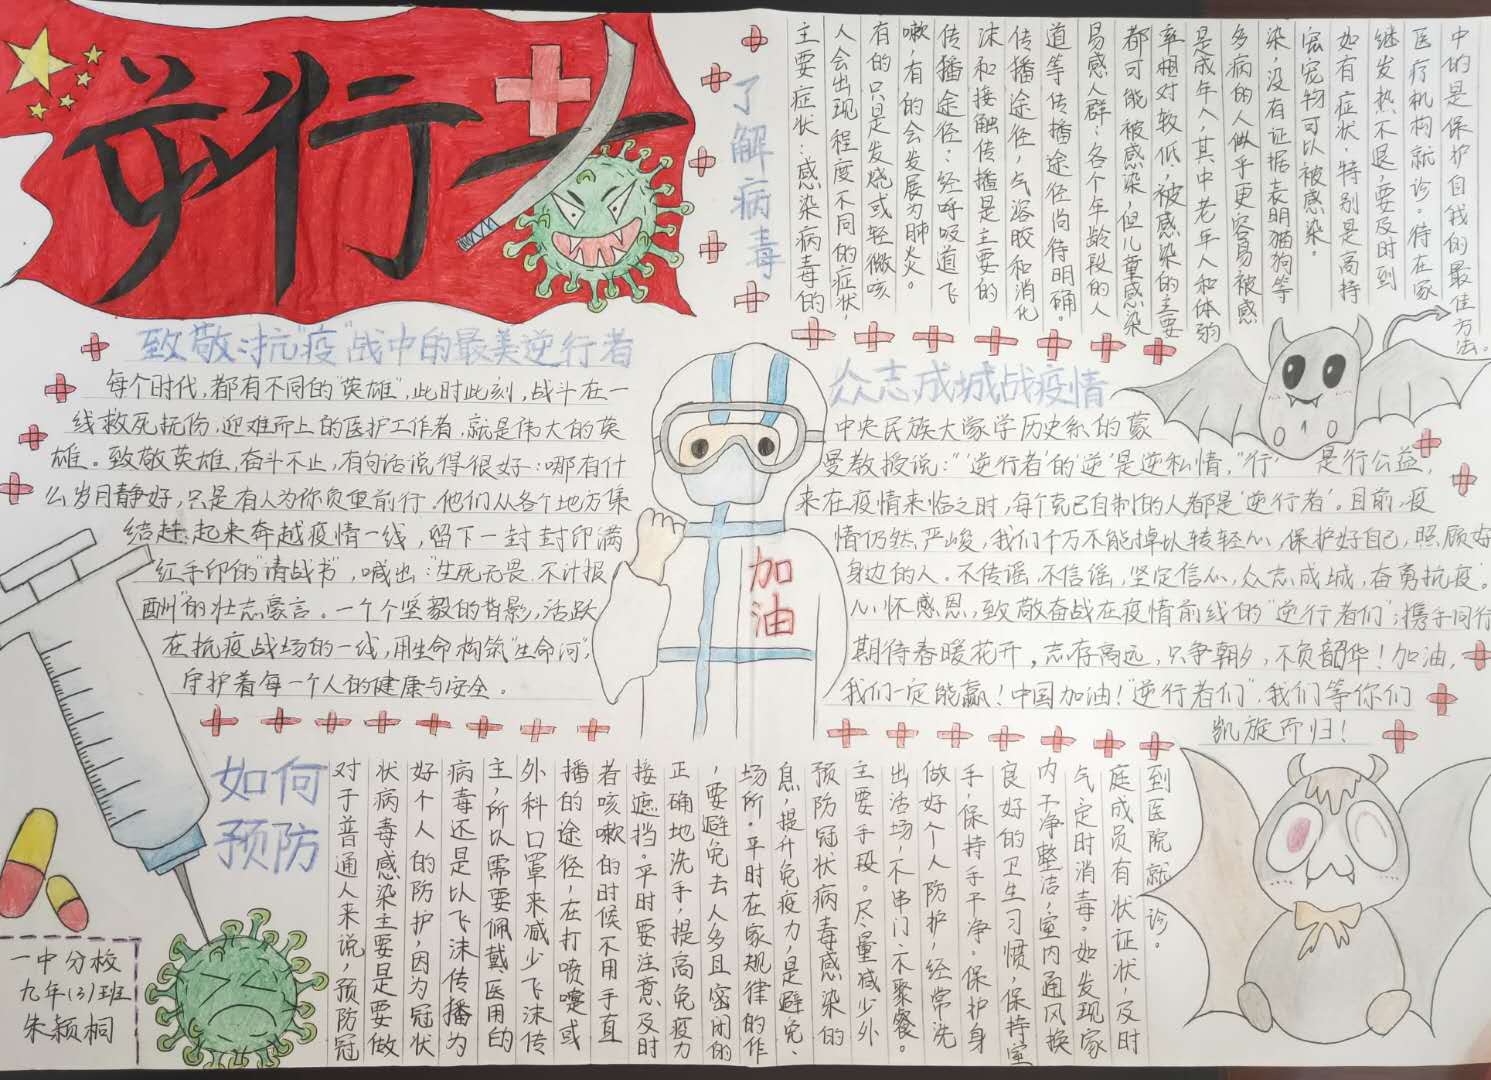 逆行
了解病毒
主要症状:感染病毒的
人会出现程度不同的症状,
有的只是发烧或轻微咳
嗽,有的会发展为肺炎。
传播途径:经呼吸道飞
沫和接触传播是主要的
传播途径,气溶胶和消化
道等传播途径尚待明确。
易感人群:各个年龄段的人
都可能被感染,但儿童感染
率相对较低,被感染的主要
是成年人,其中老年人和体弱
多病的人似乎更容易被感
染,没有证据表明猫狗等
宠宠物可以被感染。
如有症状,特别是高持
继发热不退,要及时到
医疗机构就诊。待在家
中的是保护自我的最佳方法。
致敬:抗"疫"战中的最美逆行者
每个时代,都有不同的"英雄",此时此刻,战斗在一
线救死扶伤,迎难而上的医护工作者,就是伟大的英
雄。致敬英雄,奋斗不止,有句话说得很好:哪有什
么岁月静好,只是有人为你负重前行,他们从各个地方集
结 起来奔赴疫情一线,留下一封封印满
红手印的"请战书",喊出:"生死无畏,不计报
酬"的壮志豪言。一个个坚毅的背影,活跃
在抗疫战场的一线,用生命构筑"生命河",
守护着每一个人的健康与安全。
加油
众志成城战疫情
中央民族大 学历史系的蒙
曼教授说:"'逆行者'的'逆'是逆私情,"行' 是行公益,
来在疫情来临之时,每个克己自制的人都是'逆行者'。目前,疫
情仍然严峻,我们千万不能掉以 轻心,保护好自己,照顾好
身边的人。不传谣,不信谣,坚定信心,众志成城,奋勇抗疫。
心怀感恩,致敬奋战在疫情前线的"逆行者们";携手同行
期待春暖花开,志存高远,只争朝夕,不负韶华!加油,
我们一定能赢!中国加油!"逆行者们",我们等你们
凯旋而归!
如何
预防
对于普通人来说,预防冠
状病毒感染主要是要做
好个人的防护,因为冠状
病毒还是以飞沫传播为
主,所以需要佩戴医用的
外科口罩来减少飞沫传
播的途径,在打喷嚏或
者咳嗽的时候不用手直
接遮挡。平时要注意及时
正确地洗手,提高免疫力
,要避免去人多且密闭的
场所。平时在家规律的作
息,提升免疫力,是避免、
预防冠状病毒感染的
主要手段。尽量减少外
出活动,不串门、不聚餐。
做好个人防护,经常洗
手,保持手干净。保护身
良好的卫生习惯,保持室
内干净整洁,室内通风换
气定时消毒。如发现家
庭成员有状证状,及时
到医院就诊。
一中分校
九年(3)班
朱颖桐